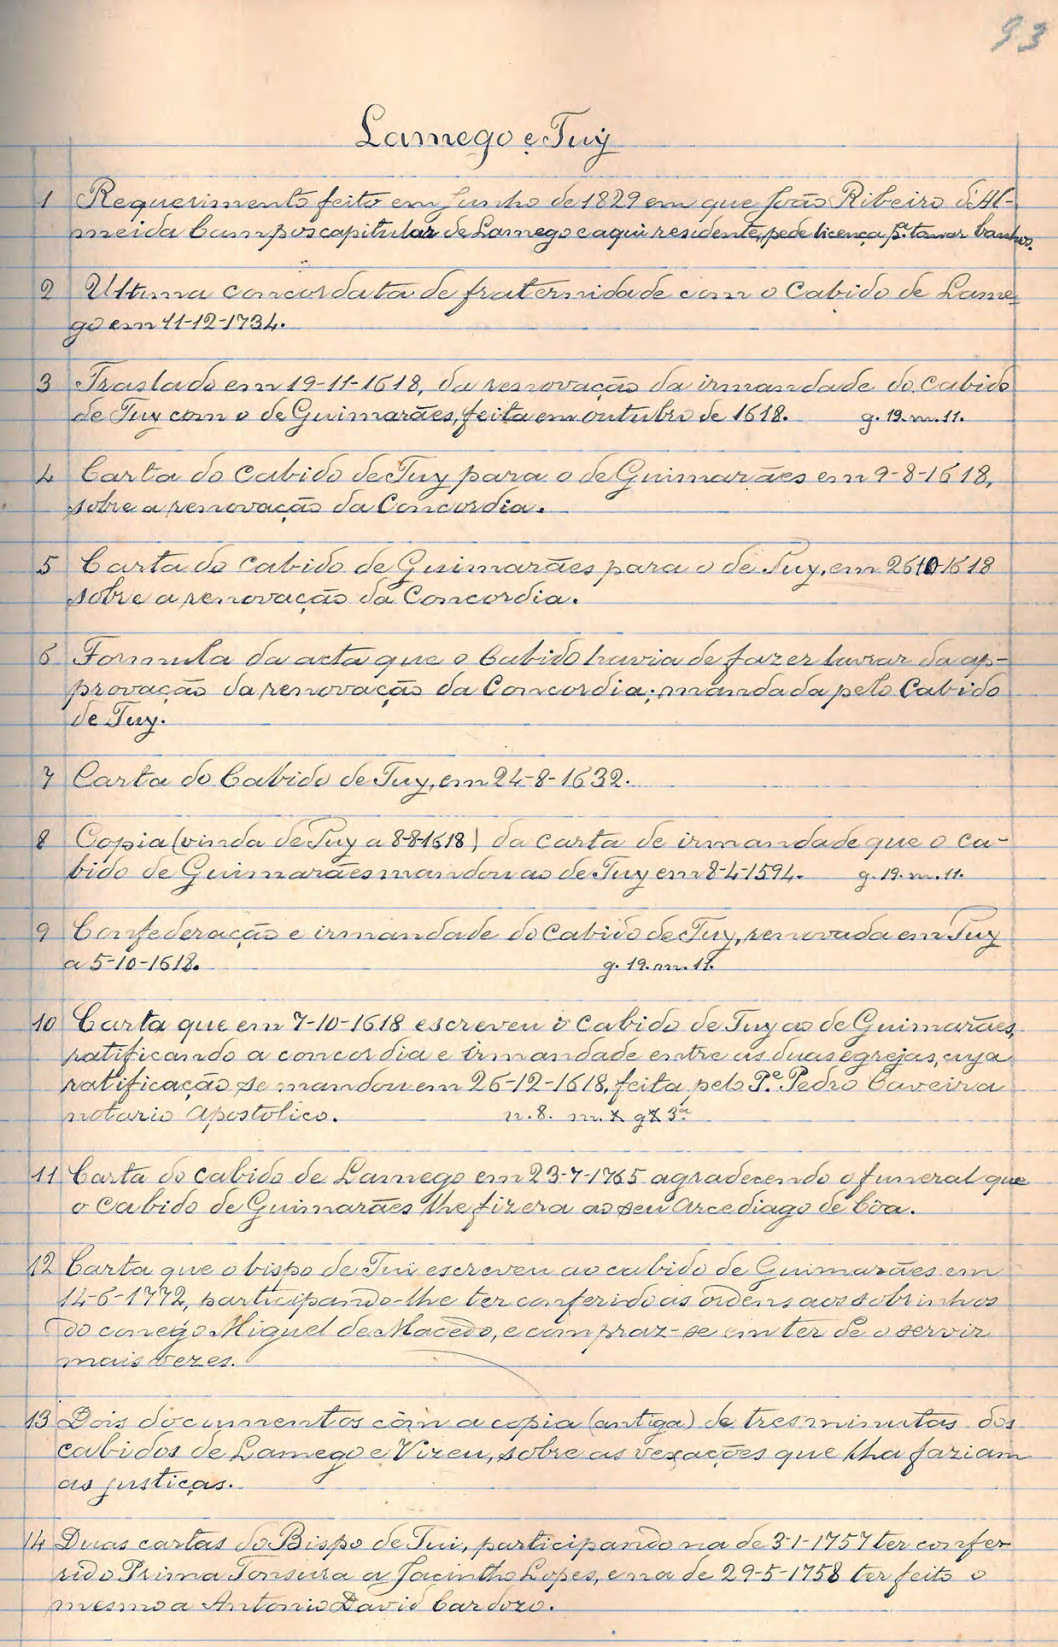 93
Lamego e Tuy
1 Requerimento feito em Junho de 1829 em que João Ribeiro d'Al-
meida Campos capitular de Lamego e aqui residente, pede licença pª. tomar banhos.
2 Ultima concordata de fraternidade com o Cabido de Lame-
go em 11-12-1734.
3 Traslado em 19-11-1618, da renovação da irmandade do Cabido
de Tuy com o de Guimarães, feita em outubro de 1618. g. 19. m. 11.
4 Carta do Cabido de Tuy para o de Guimarães em 9-8-1618,
sobre a renovação da Concordia.
5 Carta do cabido de Guimarães para o de Tuy, em 26-10-1618
sobre a renovação da Concordia.
6 Formula da acta que o Cabido havia de fazer lavrar da ap-
provação da renovação da Concordia; mandada pelo Cabido
de Tuy.
7 Carta do Cabido de Tuy, em 24-8-1632.
8 Copia (vinda de Tuy a 8-8-1618) da carta de irmandade que o ca-
bido de Guimarães mandou ao de Tuy em 8-4-1594. g. 19. m. 11.
9 Confederação e irmandade do Cabido de Tuy, renovada em Tuy
a 5-10-1618. g. 19. m. 11.
10 Carta que em 7-10-1618 escreveu o Cabido de Tuy ao de Guimarães,
ratificando a concordia e irmandade entre as duas egrejas, cuja
ratificação se mandou em 26-12-1618, feita pelo Pe. Pedro Caveira
notario Apostolico. n. 8. m.
11 Carta do cabido de Lamego em 23-7-1765 agradecendo o funeral que
o Cabido de Guimarães lhe fizera ao seu Arcediago de Côa.
12 Carta que o bispo de Tui escreveu ao cabido de Guimarães em
14-6-1772, participando-lhe ter conferido as ordens aos sobrinhos
do conego Miguel de Macedo, e compraz-se em ter de o servir
mais vezes.
13 Dois documentos com a copia (antiga) de tres minutas dos
cabidos de Lamego e Vizeu, sobre as vexações que lha faziam
as justiças.
14 Duas cartas do Bispo de Tui, participando na de 3-1-1757 ter confer-
rido Prima Tonsura a Jacintho Lopes, e na de 29-5-1758 ter feito o
mesmo a Antonio David Cardozo.